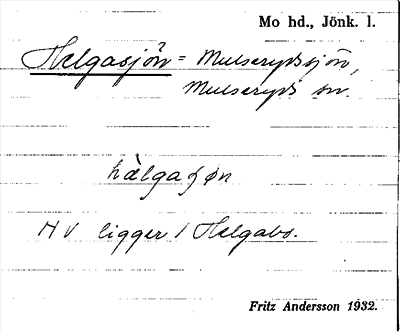 Mo hd., Jönk. l.
Helgasjön = Mulserydssjön,
Mulseryds sn.
hælgaʃøn
HV ligger i Helgabo.
Fritz Andersson 1932.